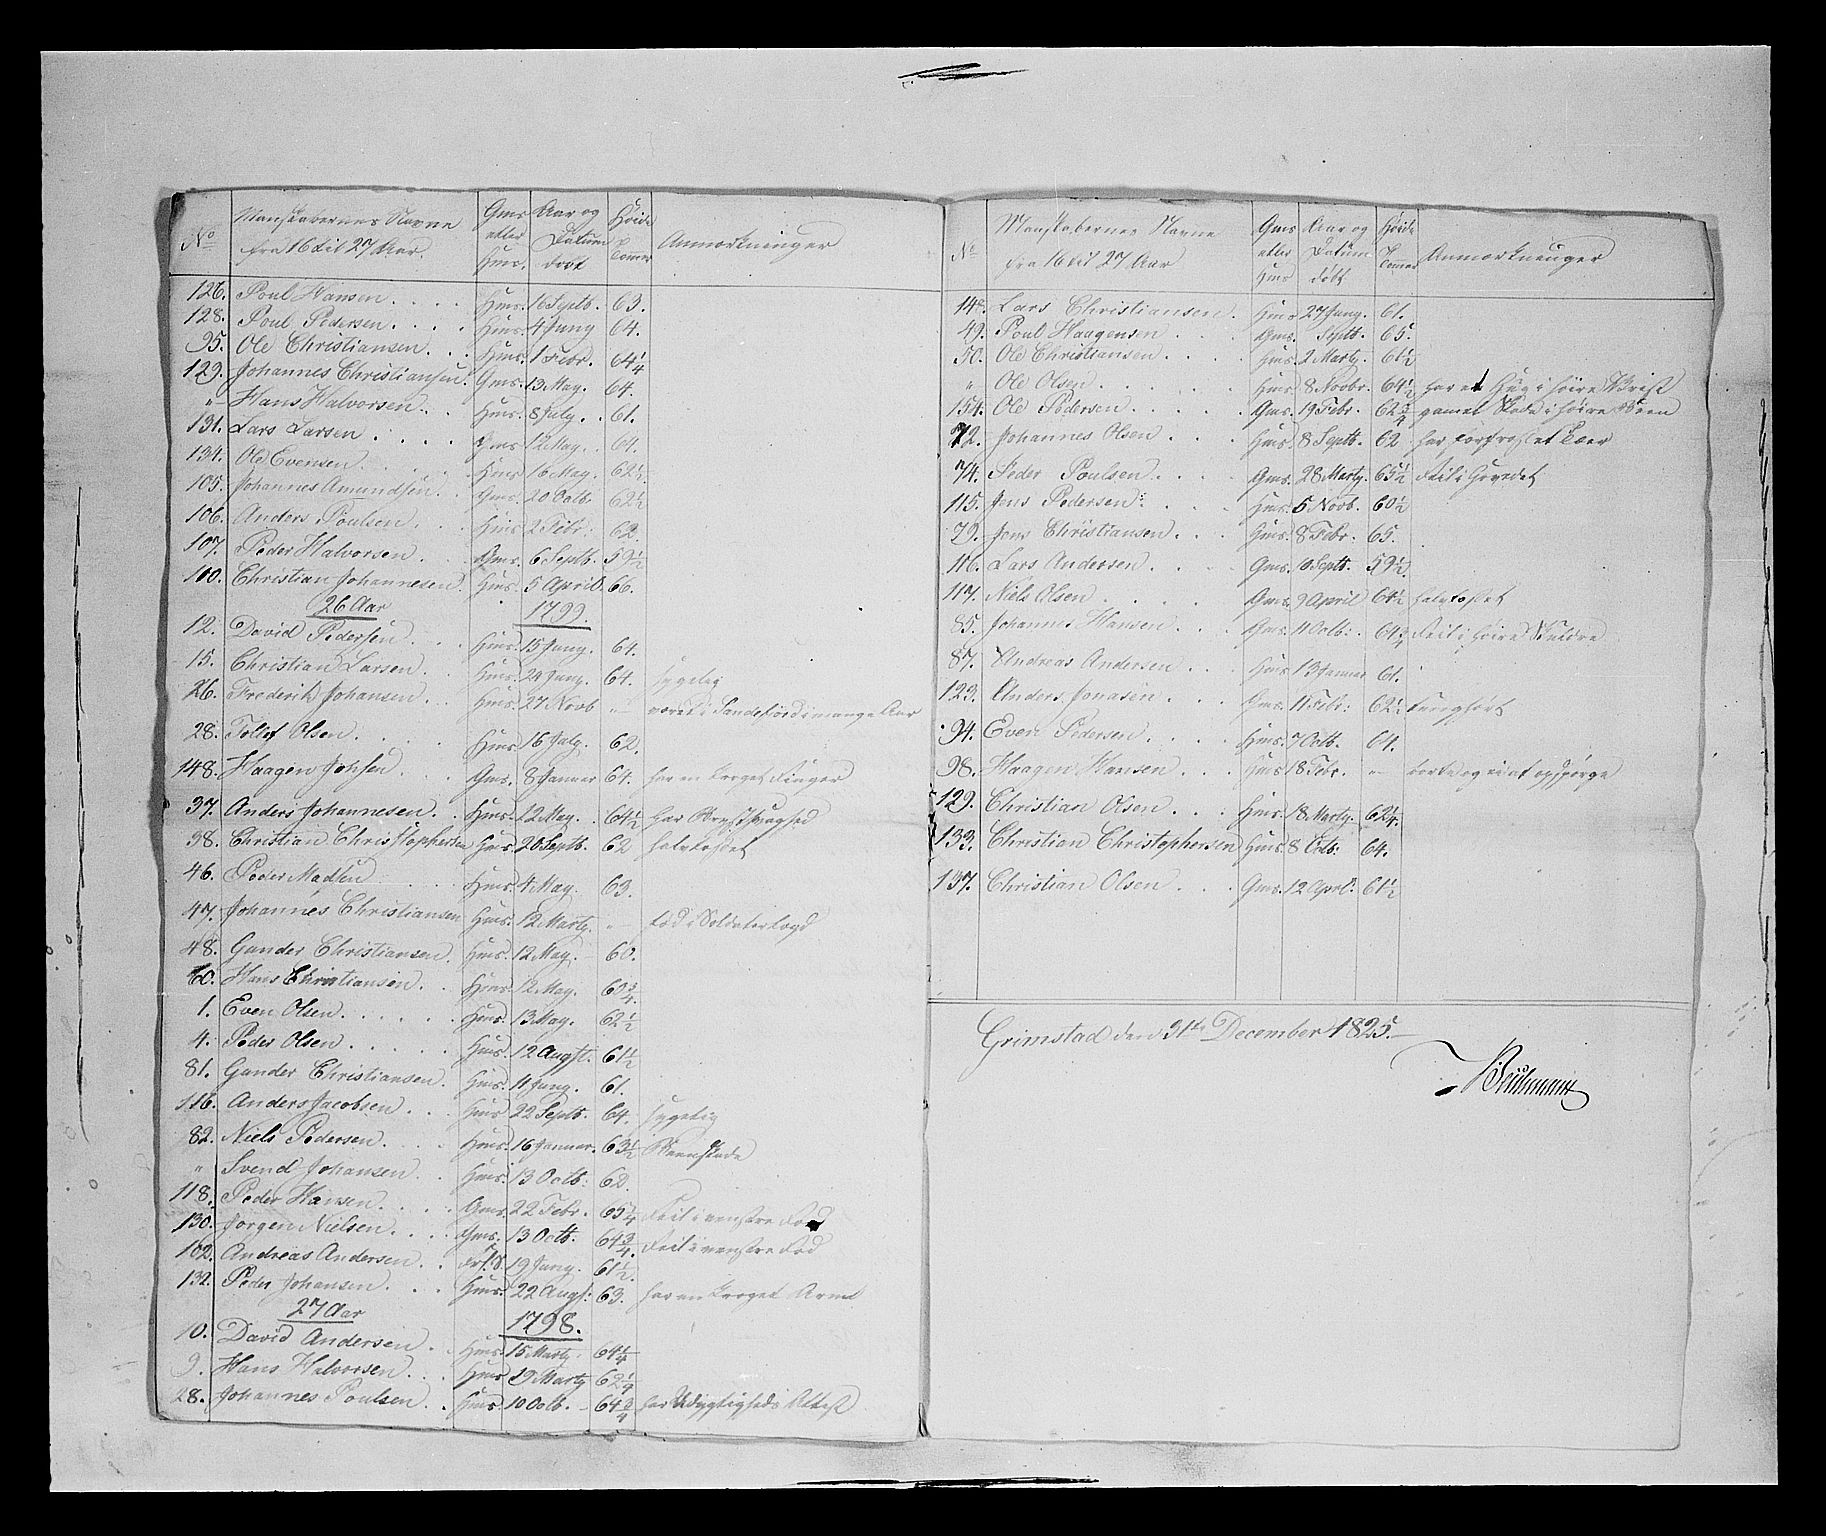 No Mandskabernes Navne fra 16 til 27 Aar. Gms eller Hms. Aar og Datum født Høide p Tommer Anmærkninger
126. Poul Hansen Hms. 16 Septb. 63.
128. Poul Pedersen Hms. 4 Juny 64.
95. Ole Christiansen Hms. 1 Febr. 64 1/4
129. Johannes Christiansen. Gms. 13 May. 64.
" Hans Halvorsen Hms. 8 July. 61.
131. Lars Larsen Gms. 12 May. 64.
134. Ole Evensen Hms. 16 May. 62 1/2.
105. Johannes Amundsen Gms. 20 Octb. 62 1/2
106. Anders Poulsen Hms. 2 Febr. 62.
107. Peder Halvorsen Gms. 6 Septb. 59 1/2
100. Christian Johannesen Hms. 5 April. 66.
26 Aar 1799.
12. David Pedersen Hms. 15 Juny. 64.
15. Christian Larsen Hms. 24 Juny. 64. sygelig
26. Frederik Johansen Hms. 27 Novb " været i Sandefiord i mange Aar
28. Tollef Olsen Hms. 16 July. 62.
148. Haagen Johsen Gms. 8 Januar 64. har en kroget Finger
37. Anders Johannesen Hms. 12 May. 64 1/2 har Brystsvaghed
38. Christian Christophersen Hms. 20 Septb. 62
46. Peder Madsen Hms. 4 May. 63.
47. Johannes Christiansen Hms. 12 Marty. " fød i Soldaterlægd
48. Gunder Christiansen Hms. 12 May. 60.
60. Hans Christiansen Hms. 12 May. 60 3/4.
1. Even Olsen Hms. 13 May. 62 1/2
4. Peder Olsen Hms. 12 Augst. 61 1/2
81. Gunder Christiansen. Hms. 11 Juny. 61.
116. Anders Jacobsen Hms 22 Septb. 64. sygelig
82. Niels Pedersen Hms. 16 Januar. 63 1/2 Beenskade
" Svend Johansen Hms. 13 Octb: 62.
118. Peder Hansen Gms. 22 Febr. 65 1/4 Feil i venstre Fod
130. Jørgen Nielsen Gms. 13 Octb. 64 3/4. Feil i venstre Fod
102. Andreas Andersen 19 Juny. 61 1/2.
132. Peder Johansen Hms. 22 Augs: 63. har en kroget Arm
27 Aar 1798.
10. David Andersen Hms. 15 Marty. 64 1/4
9. Hans Halvorsen Hms 19 Marty 62 1/4
28. Johannes Poulsen Hms. 10 Octb. 64 3/4 har Udygtigheds Attest
No Mandskabernes Navne fra 16 til 27 Aar Gms eller Hms Aar og Datum født Høide p Tommer Anmærkninger
Lars Christiansen. Hms 27 Juny. 61.
49. Poul Haagensen Gms. Septb. 65.
50. Ole Christiansen Hms. 2 Marty. 61 1/2
" Ole Olsen Hms. 8 Novbr. 64 1/2 har et Hug i høire Wrist
154. Ole Pedersen Gms. 19 Febr. 62 3/4 gamel Skade i høire Been
72. Johannes Olsen Hms. 8 Septb. 62 har forfrosset Tæer
74. Peder Poulsen Gms. 28 Marty. 65 1/2 Feil i Hovedet
115. Jens Pedersen: Hms. 5 Novb. 60 1/2
79. Jens Christiansen Gms. 8 Febr. 65.
116. Lars Andersen Gms. 10 Septb. 59 1/2.
117. Niels Olsen Gms. 9 April 64 1/2
85. Johannes Hansen Gms. 11 Octb: 64 3/4 Feil i høire Skuldre
87. Andreas Andersen Hms 13 Januar 61.
123. Anders Jonasen Gms. 11 Febr: 62 1/2 tunghørt
94. Even Pedersen Hms. 7 Octb. 64.
98. Haagen Hansen Hms 18 Febr. "
129. Christian Olsen Hms. 18 Marty. 62 1/4.
133. Christian Christophersen Hms. 8 Octb: 64.
137. Christian Olsen Gms. 12 April. 61 1/2
Grimstad den 31te December 1825.